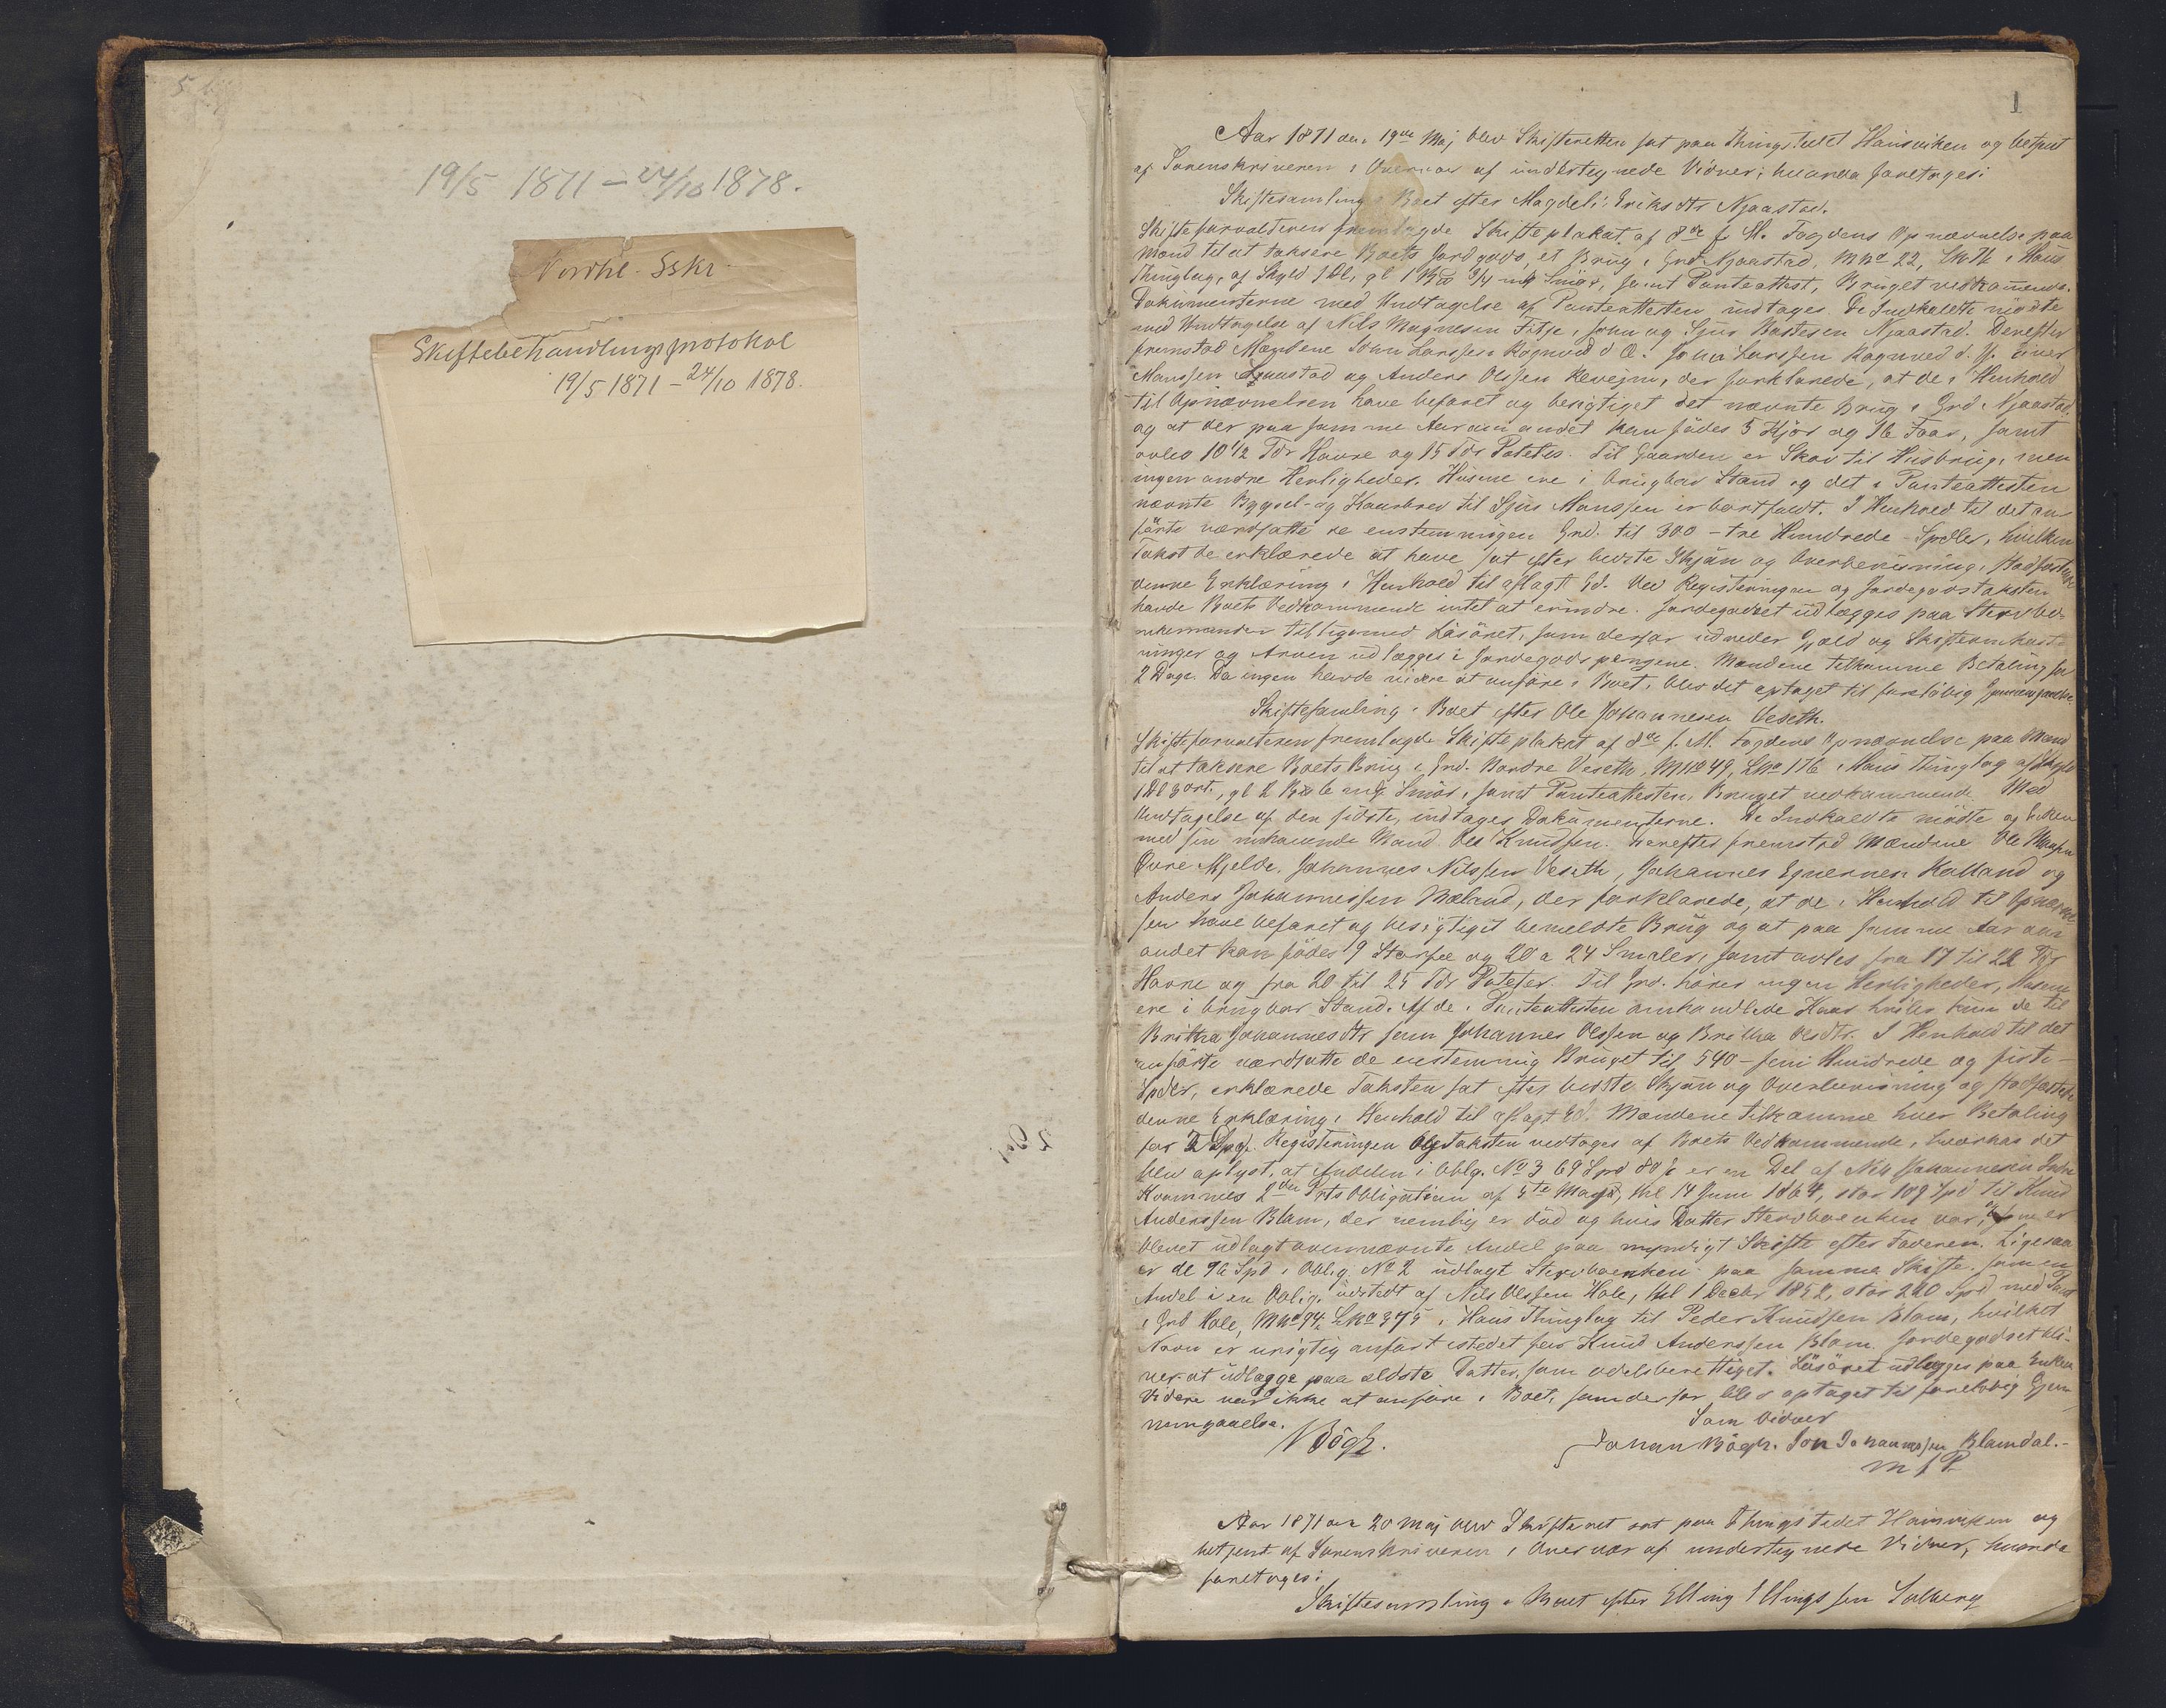 19/5 1871 – 24/10 1878.
Nordhl. Sskr.
Skiftebehandlingsprotokol
19/5 1871 – 24/10 1878.
1
Aar 1871 den 19de Maj blev Skifteretten sat paa Thingstedet Hausviken og betjent
af Sorenskriveren i Overvær af undertegnede Vidner; hvorda foretoges:
Skiftesamling i Boet efter Magdeli Eriksdtr Njaastad.
Skifteforvalteren fremlagde Skifteplakat af 8de f. M. Fogdens Opnævnelse paa
Mænd til at taksere Boets Jordgods, et Brug i Grd Njaastad, MNo 22, i Haus
Thinglag, af Skyld 1 Dl, gl 1 Bpd 3/4 mk Smör, samt Panteattest, Bruget vedkommende.
Dokumenterne med Undtagelse af Panteattesten indtages. De Indkaldte mödte
med Undtagelse af Nils Magnesen Fitje, John og Sjur Bastesen Njaastad. Derefter
fremstod Mændene John Larssen Rognved d. Æ. John Larssen Rognved d. Y. Einer
Monssen Njaastad og Anders Olssen, der forklarede, at de i Henhold
til Opnævnelsen have befaret og besigtiget det nævnte Brug i Grd. Njaastad,
og at der paa samme Aar om andet kan födes 5 Kjör og 16 Faar, samt
avles 10 1/2 Tdr Havre og 15 Tdr Poteter. Til Gaarden er Skov til Husbrug, men
ingen andre Herligheder. Husene ere i brugbar Stand og det i Panteattesten
nævnte Bygsel- og Kaarbrev til Sjur Monssen er bortfaldt. I Henhold til det an-
förte værdsatte de enstemmigen Grd. til 300 – tre Hundrede – Spdlr, hvilken
Takst de erklærede at have sat efter bedste Skjön og Overbevisning, stadfæstende
denne Erklæring i Henhold til aflagt Ed. Ved Registeringen og Jordegodstaksten
havde Boets Vedkommende intet at erindre. Jordegodset udlægges paa Stervbo-
enkemanden tilligemed Lösöret, som derfor udreder Gjæld og Skifteomkost-
ninger og Arven udlægges i Jordegodspengene. Mændene tilkomme Betaling for
2 Dage. Da ingen havde videre at anföre i Boet, blev det optaget til forelöbig Gjennemgaaelse.
Skiftesamling i Boet efter Ole Johannesen Veseth.
Skifteforvalteren fremlagde Skifteplakat af 8de f. M. Fogdens Opnævnelse paa Mænd
til at taksere Boets Brug i Grd. Nordre Veseth, MNo 49, LNo 176 i Haus Thinglag af Skyld
1 Dl 3 ort, gl 2 Bpd 6 mk Smör, samt Panteattesten, Bruget vedkommende. Med
Undtagelse af den sidste, indtages Dokumenterne. De Indkaldte mödte og Enken
med sin nuhavende Mand Ole Knudsen. Derefter fremstod Mændene Ole
Övre Mjelde, Johannes Nilssen Veseth, Johannes Kalland og
Anders Johannessen Mæland, der forklarede, at de i Henhold til Opnævnel-
sen have befaret og besigtiget bemeldte Brug og at paa samme Aar om
andet kan födes 9 Storfæ og 20 a 24 Smaler, samt avles fra 17 til 22 Tdr
Havre og fra 20 til 25 Tdr Poteter. Til Grd. hörer ingen Herligheder, Husene
ere i brugbar Stand. Af de i Panteattesten omhandlede Kaar hviler kun de til
Britha Johannesdtr samt Johannes Olssen og Britha Olsdtr. I Henhold til det
anförte værdsatte de enstemmig Bruget til 540 – fem Hundrede og firti –
Spdlr, erklærede Taksten sat efter bedste Skjön og Overbevisning og stadfæstede
denne Erklæring i Henhold til aflagt Ed. Mændene tilkomme hver Betaling
for 2 Dage. Registeringen og Taksten vedtoges af Boets Vedkommende, hvorhos det
blev oplyst, at Andelen i Oblg. No 3 69 Spd 80 s er en Del af Nils Johannesen Indre
Kvamnes 2den Prts Obligation af 5te Maj, thl 14 Juni 1864, stor 109 Spd til Knud
Anderssen Blom, der nemlig er död og hvis Datter Stervboenken var, er
blevet udlagt ovennævnte Andel paa myndigt Skifte efter Faderen. Ligesaa
er de 96 Spd i Oblig. No 2 udlagt Stervboenken paa samme Skifte som en
Andel i en Oblig. udstedt af Nils Olssen Hole, thl 1 Decbr 1852, stor 200 Spd med Pant
i Grd Hole, MNo 94, LNo 375 i Haus Thinglag til Peder Knudsen Blom, hvilket
Navn er urigtig anfört istedet for Knud Anderssen Blom. Jordegodset bli-
ver at udlægge paa ældste Datter, som odelsberettiget. Lösöret udlægges paa Enken.
Videre var ikke at anföre i Boet, som derfor blev optaget til forelöbig Gjen-
nemgaaelse.
Som Vidner
Bögh. Johan Bögh. Jon Johannessen Blomdal.
m f P.
Aar 1871 den 20 Maj blev Skifteret sat paa Thingstedet Hausviken og
betjent af Sorenskriveren i Overvær af undertegnede Vidner, hvorda
foretoges:
Skiftesamling i Boet efter Elling Ellingssen Solberg